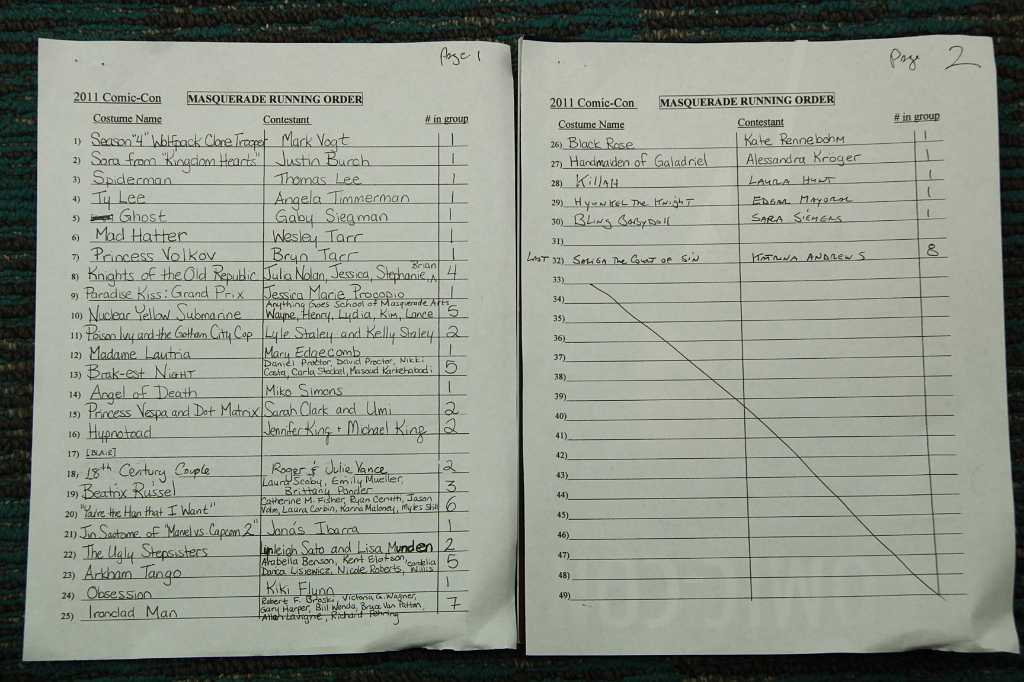 Page 1
2011 Comic-Con MASQUERADE RUNNING ORDER
Costume Name Contestant # in group
1) Season "4" Wolfpack Clone Trooper Mark Vogt 1
2) Sora from "Kingdom Hearts" Justin Burch 1
3) Spiderman Thomas Lee 1
4) Ty Lee Angela Timmerman 1
5) Ghost Gaby Siegman 1
6) Mad Hatter Wesley Tarr 1
7) Princess Volkov Bryn Tarr 1
8) Knights of the Old Republic Julia Nolan, Jessica, Stephanie, Brian 4
9) Paradise Kiss: Grand Prix Jessica Marie Procopio 1
Anything Goes School of Masquerade Arts
10) Nuclear Yellow Submarine Wayne, Henry, Lydia, Kim, Lance 5
11) Poison Ivy and the Gotham City Cop Lyle Staley and Kelly Staley 2
12) Madame Lautria Mary Edgecomb 1
Daniel Proctor, David Proctor, Nikki
13) Brak-est Night Costa, Carla Stockel, Masoud Karkehabadi 5
14) Angel of Death Miko Simons 1
15) Princess Vespa and Dot Matrix Sarah Clark and Umi 2
16) Hypnotoad Jennifer King + Michael King 2
17) [BLAIR]
18) 18th Century Couple Roger & Julie Vance 2
Laura Scoby, Emily Mueller,
19) Beatrix Russel Brittany Ponder 3
Catherine M. Fisher, Ryan Jason
20) "You're the Han that I Want" Laura Corbin, Karina Maloney, Myles 6
21) Jin Saotome of "Marvel vs. Capcom 2" Jonás Ibarra 1
22) The Ugly Stepsisters Lynleigh Sato and Lisa Munden 2
Arabella Benson, Kent Elofson, Cordelia
23) Arkham Tango Danca Lisiewicz, Nicole Roberts, Willis 5
24) Obsession Kiki Flynn 1
Robert F. Broski, Victoria G. Wagner,
Gary Harper, Bill Wonda, Bryce Van Patten,
25) Ironclad Man Allan Lavigne, Richard 7
Page 2
2011 Comic-Con MASQUERADE RUNNING ORDER
Costume Name Contestant # in group
26) Black Rose Kate Rennebohm 1
27) Handmaiden of Galadriel Alessandra Kroger 1
28) Killah Laura Hunt 1
29) Hyunkel the Knight Edgar Mayoral 1
30) Bling Babydoll Sara Siemens 1
31)
LAST 32) Saliga the Court of Sin Katrina Andrews 8
33)
34)
35)
36)
37)
38)
39)
40)
41)
42)
43)
44)
45)
46)
47)
48)
49)